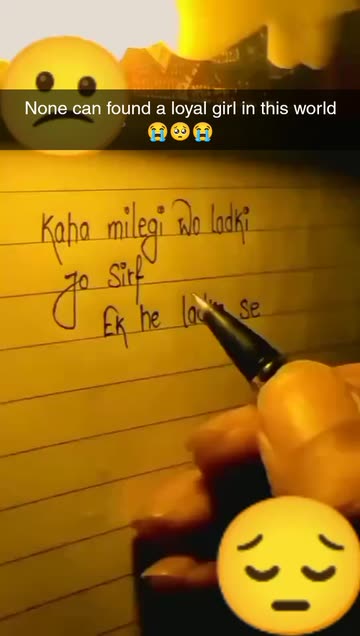 None can found a loyal girl in this world
😭🥺😭
Kaha milegi Wo ladki
Jo Sirf
Ek he se